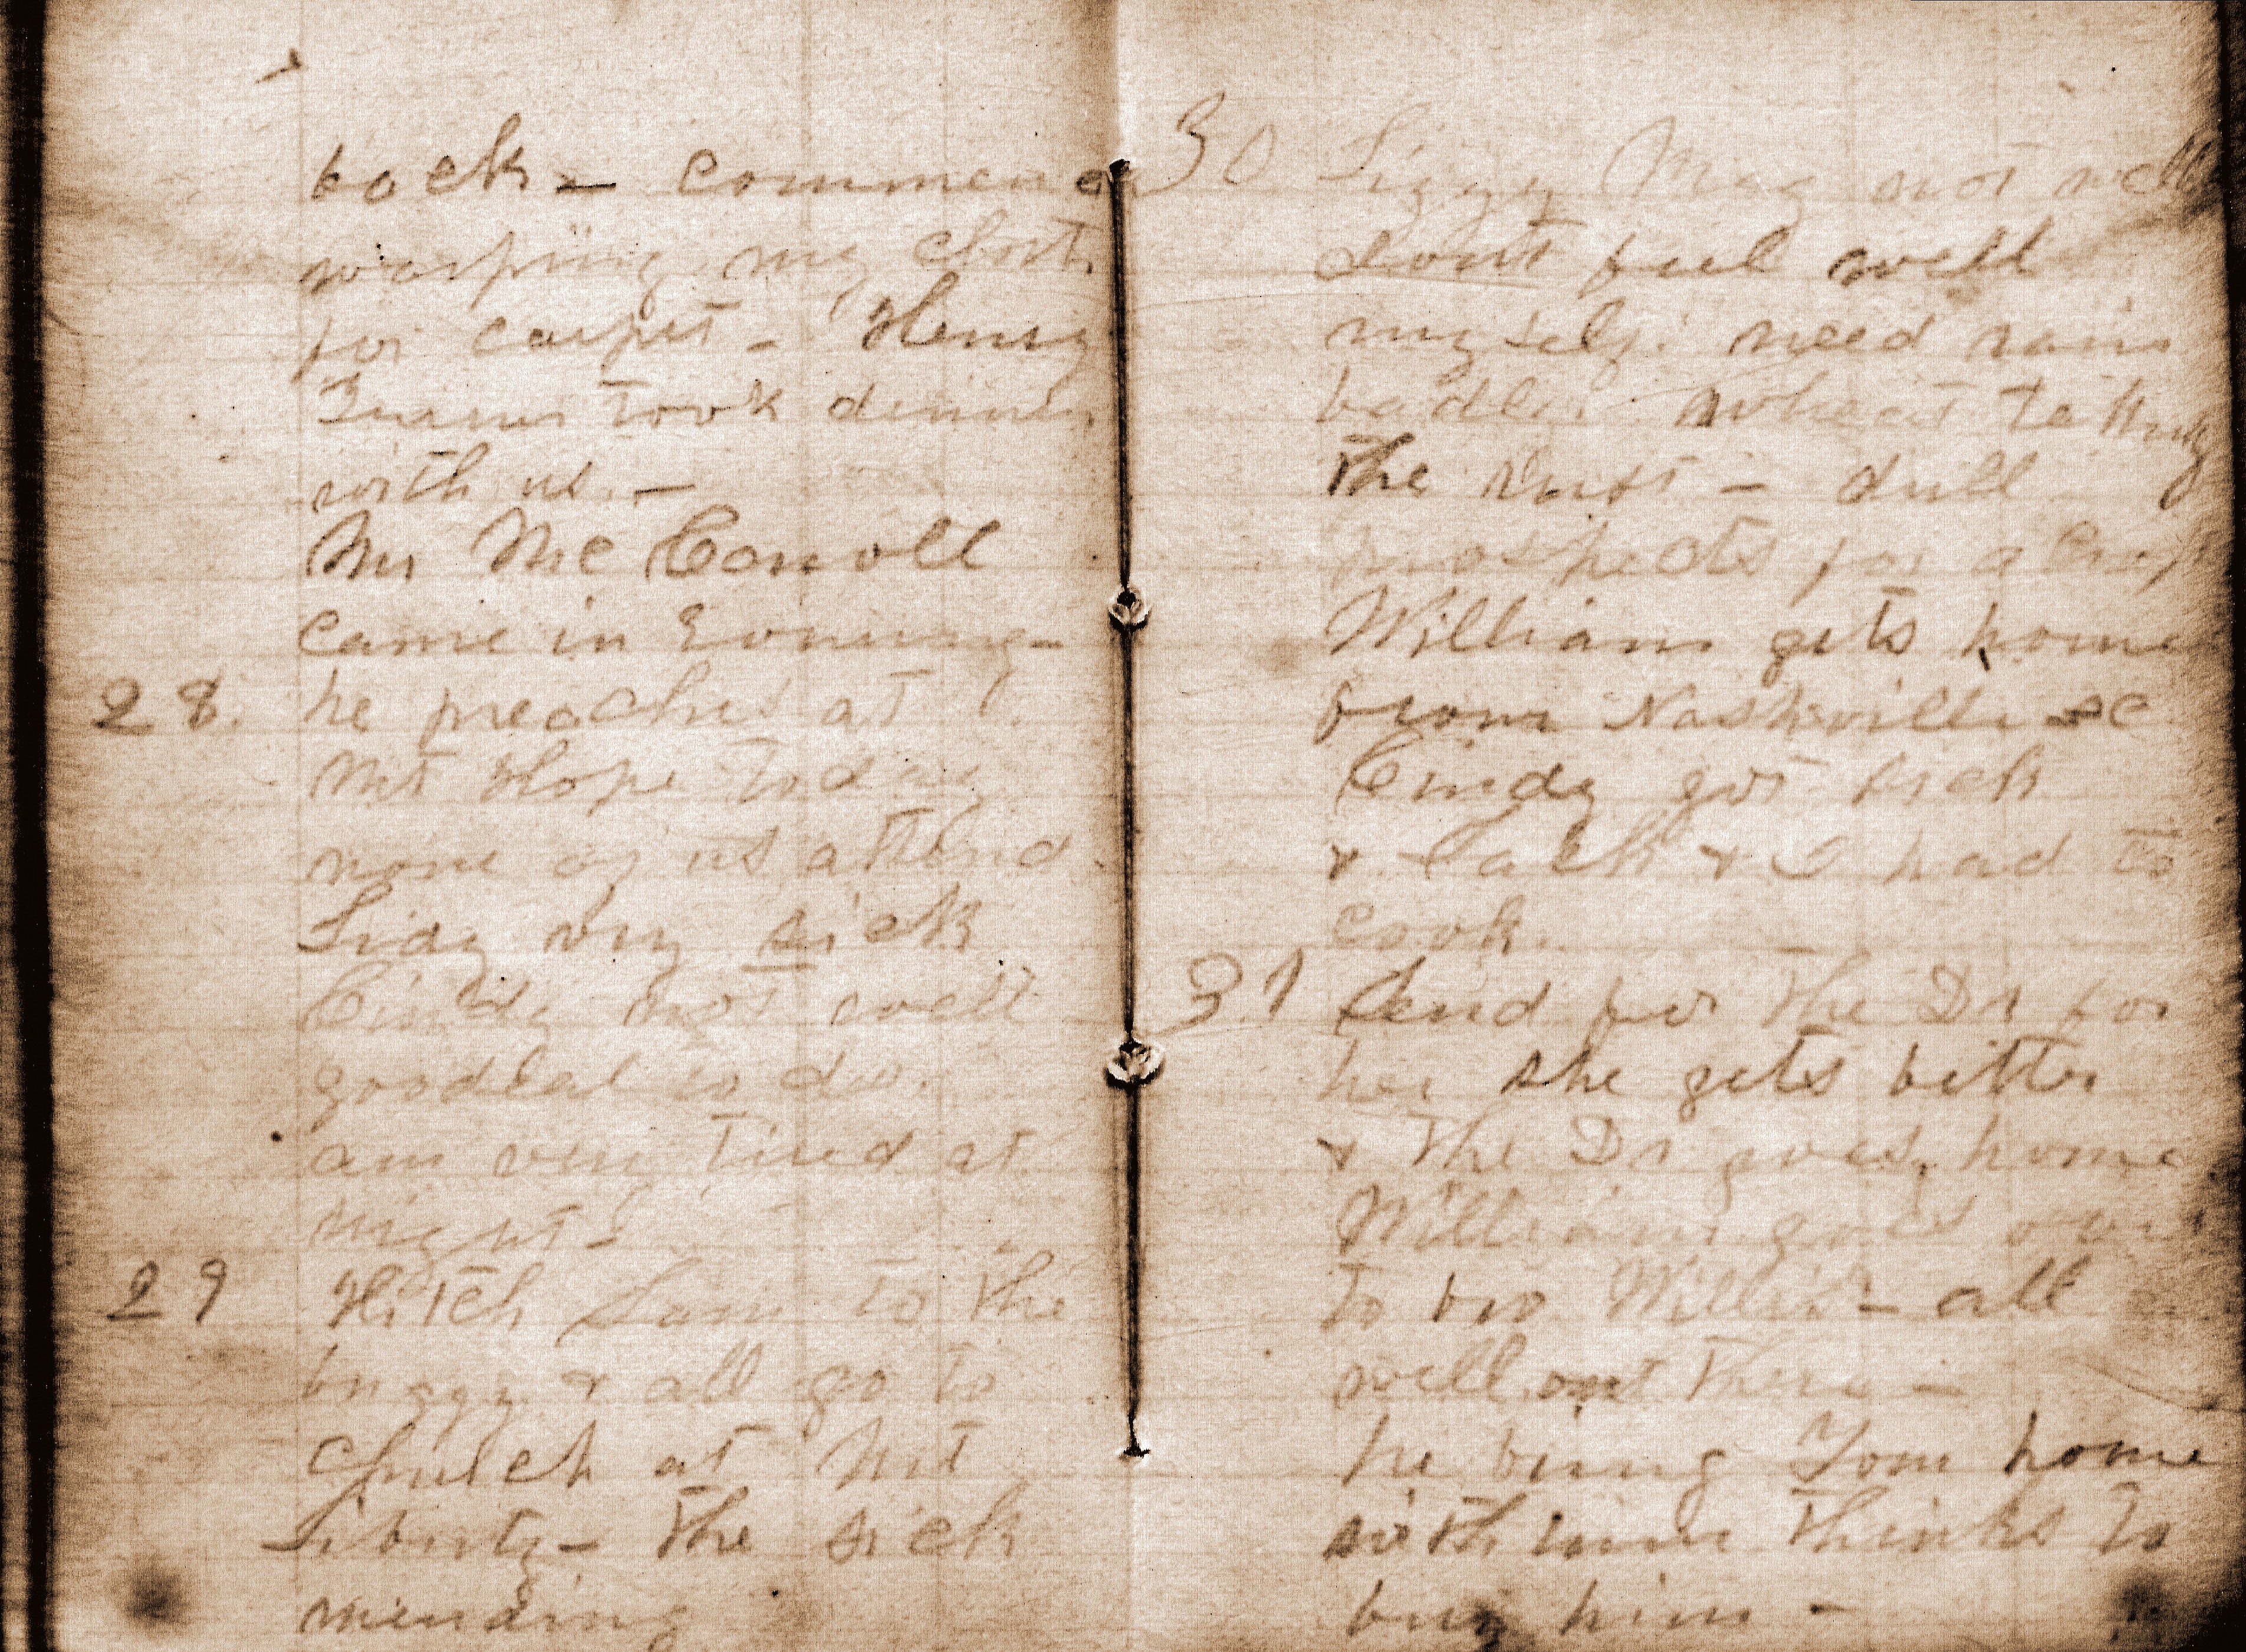 back - commence
warping my cloth
for carpet - Henry
Turner took dinner
with us. -
Mr McCarroll
came in Evening -
28. he preaches at
Mt Hope today
none of us attend.
Lidy very sick
Cindy not well
goodeal to do.
am very tired at
night -
29 Hitch Sam to the
buggy & all go to
Church at Mt
Liberty - the sick
mending
30 Lizzy Mag not well
dont feel well
myself. need rain
badly. wheat taking
the rust - dull
prospects for a Crop
William gets home
from Nashville &c
Cindy got sick
& & I had to
cook.
31 Send for the Dr for
her she gets better
& the Dr goes home
William goes over
to bro Willis - all
well out there -
he bring Tom home
with him thinks to
buy him -